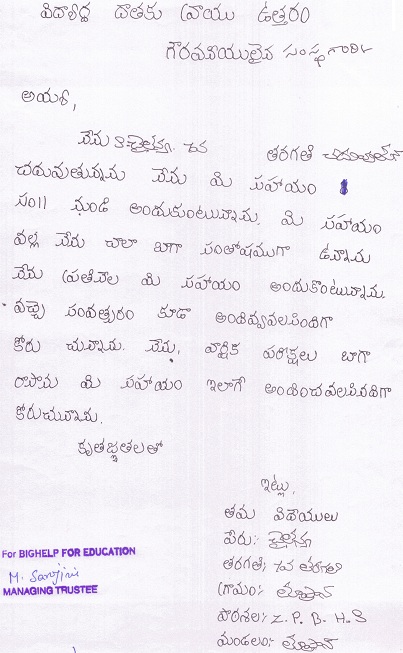 విద్యార్థి దాతకు వ్రాయు ఉత్తరం
గౌరవనీయులైన సంస్థ గారికి
అయ్యా,
నేను 7వ తరగతి
చదువుతున్నాను నేను మి సహాయం
నుండి అందుకుంటున్నాను. మి సహాయం
వల్ల నేను చాలా బాగా సంతోషముగా ఉన్నాను
నేను ప్రతినెల మి సహాయం అందుకొంటున్నాను.
వచ్చే సంవత్సరం కూడా అందివ్వవలసిందిగా
కోరు చున్నాను. నేను, వార్షిక పరీక్షలు బాగా
రాసాను మి సహాయం ఇలాగే అందించవలసినదిగా
కోరుచున్నాను.
కృతజ్ఞతలతో
ఇట్లు,
తమ విదేయులు
పేరు:-
తరగతి; 7వ తరగతి
గ్రామం:-
పాఠశాల:- Z. P. B. H. S
మండలం:-
For BIGHELP FOR EDUCATION
M. Sanjini
MANAGING TRUSTEE